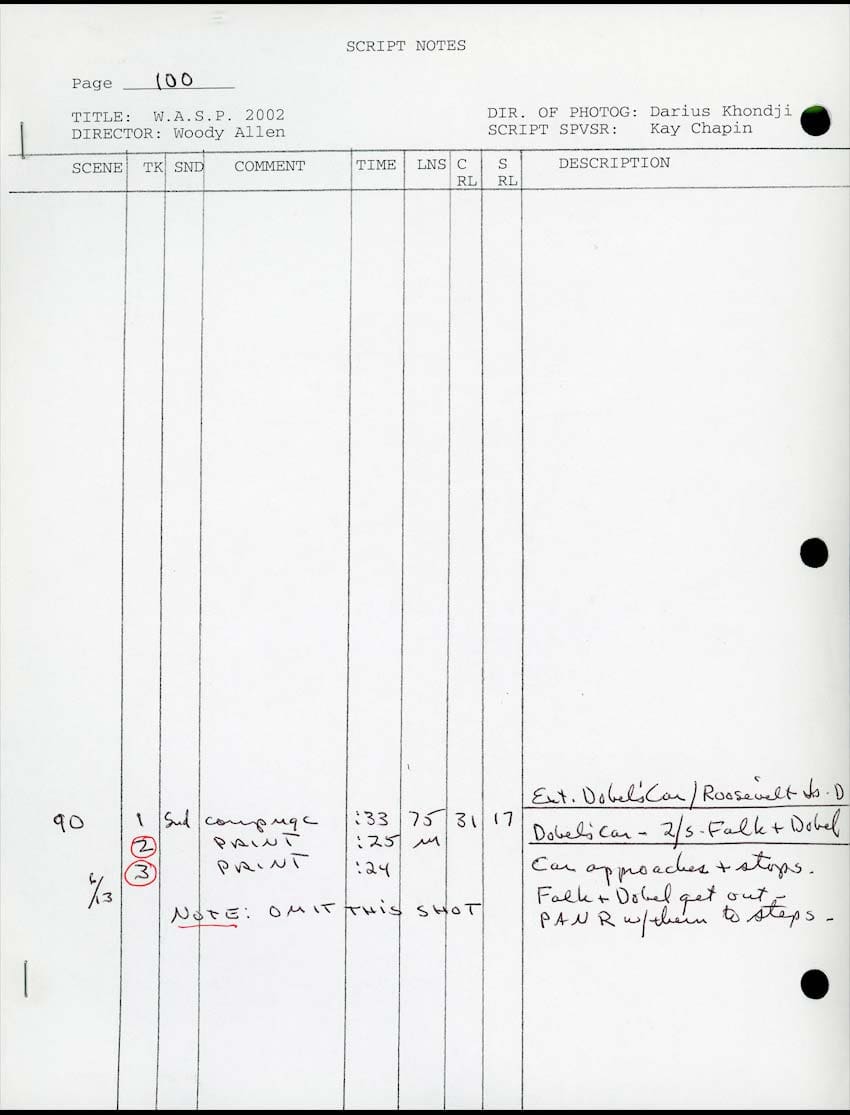 SCRIPT NOTES
Page 100
TITLE: W.A.S.P. 2002
DIR. OF PHOTOG: Darius Khondji
DIRECTOR: Woody Allen
SCRIPT SPVSR: Kay Chapin
SCENE TK SND COMMENT TIME LNS C RL S RL DESCRIPTION
Ext. Dobel's Car / Roosevelt - D
90 1 Snd comp :33 75 31 17 Dobel's Car - 2/s - Falk + Dobel
2 PRINT :25 M
3 PRINT :24 Car approaches + stops.
6/13 Falk + Dobel get out -
NOTE: OMIT THIS SHOT PAN R w/them to steps -